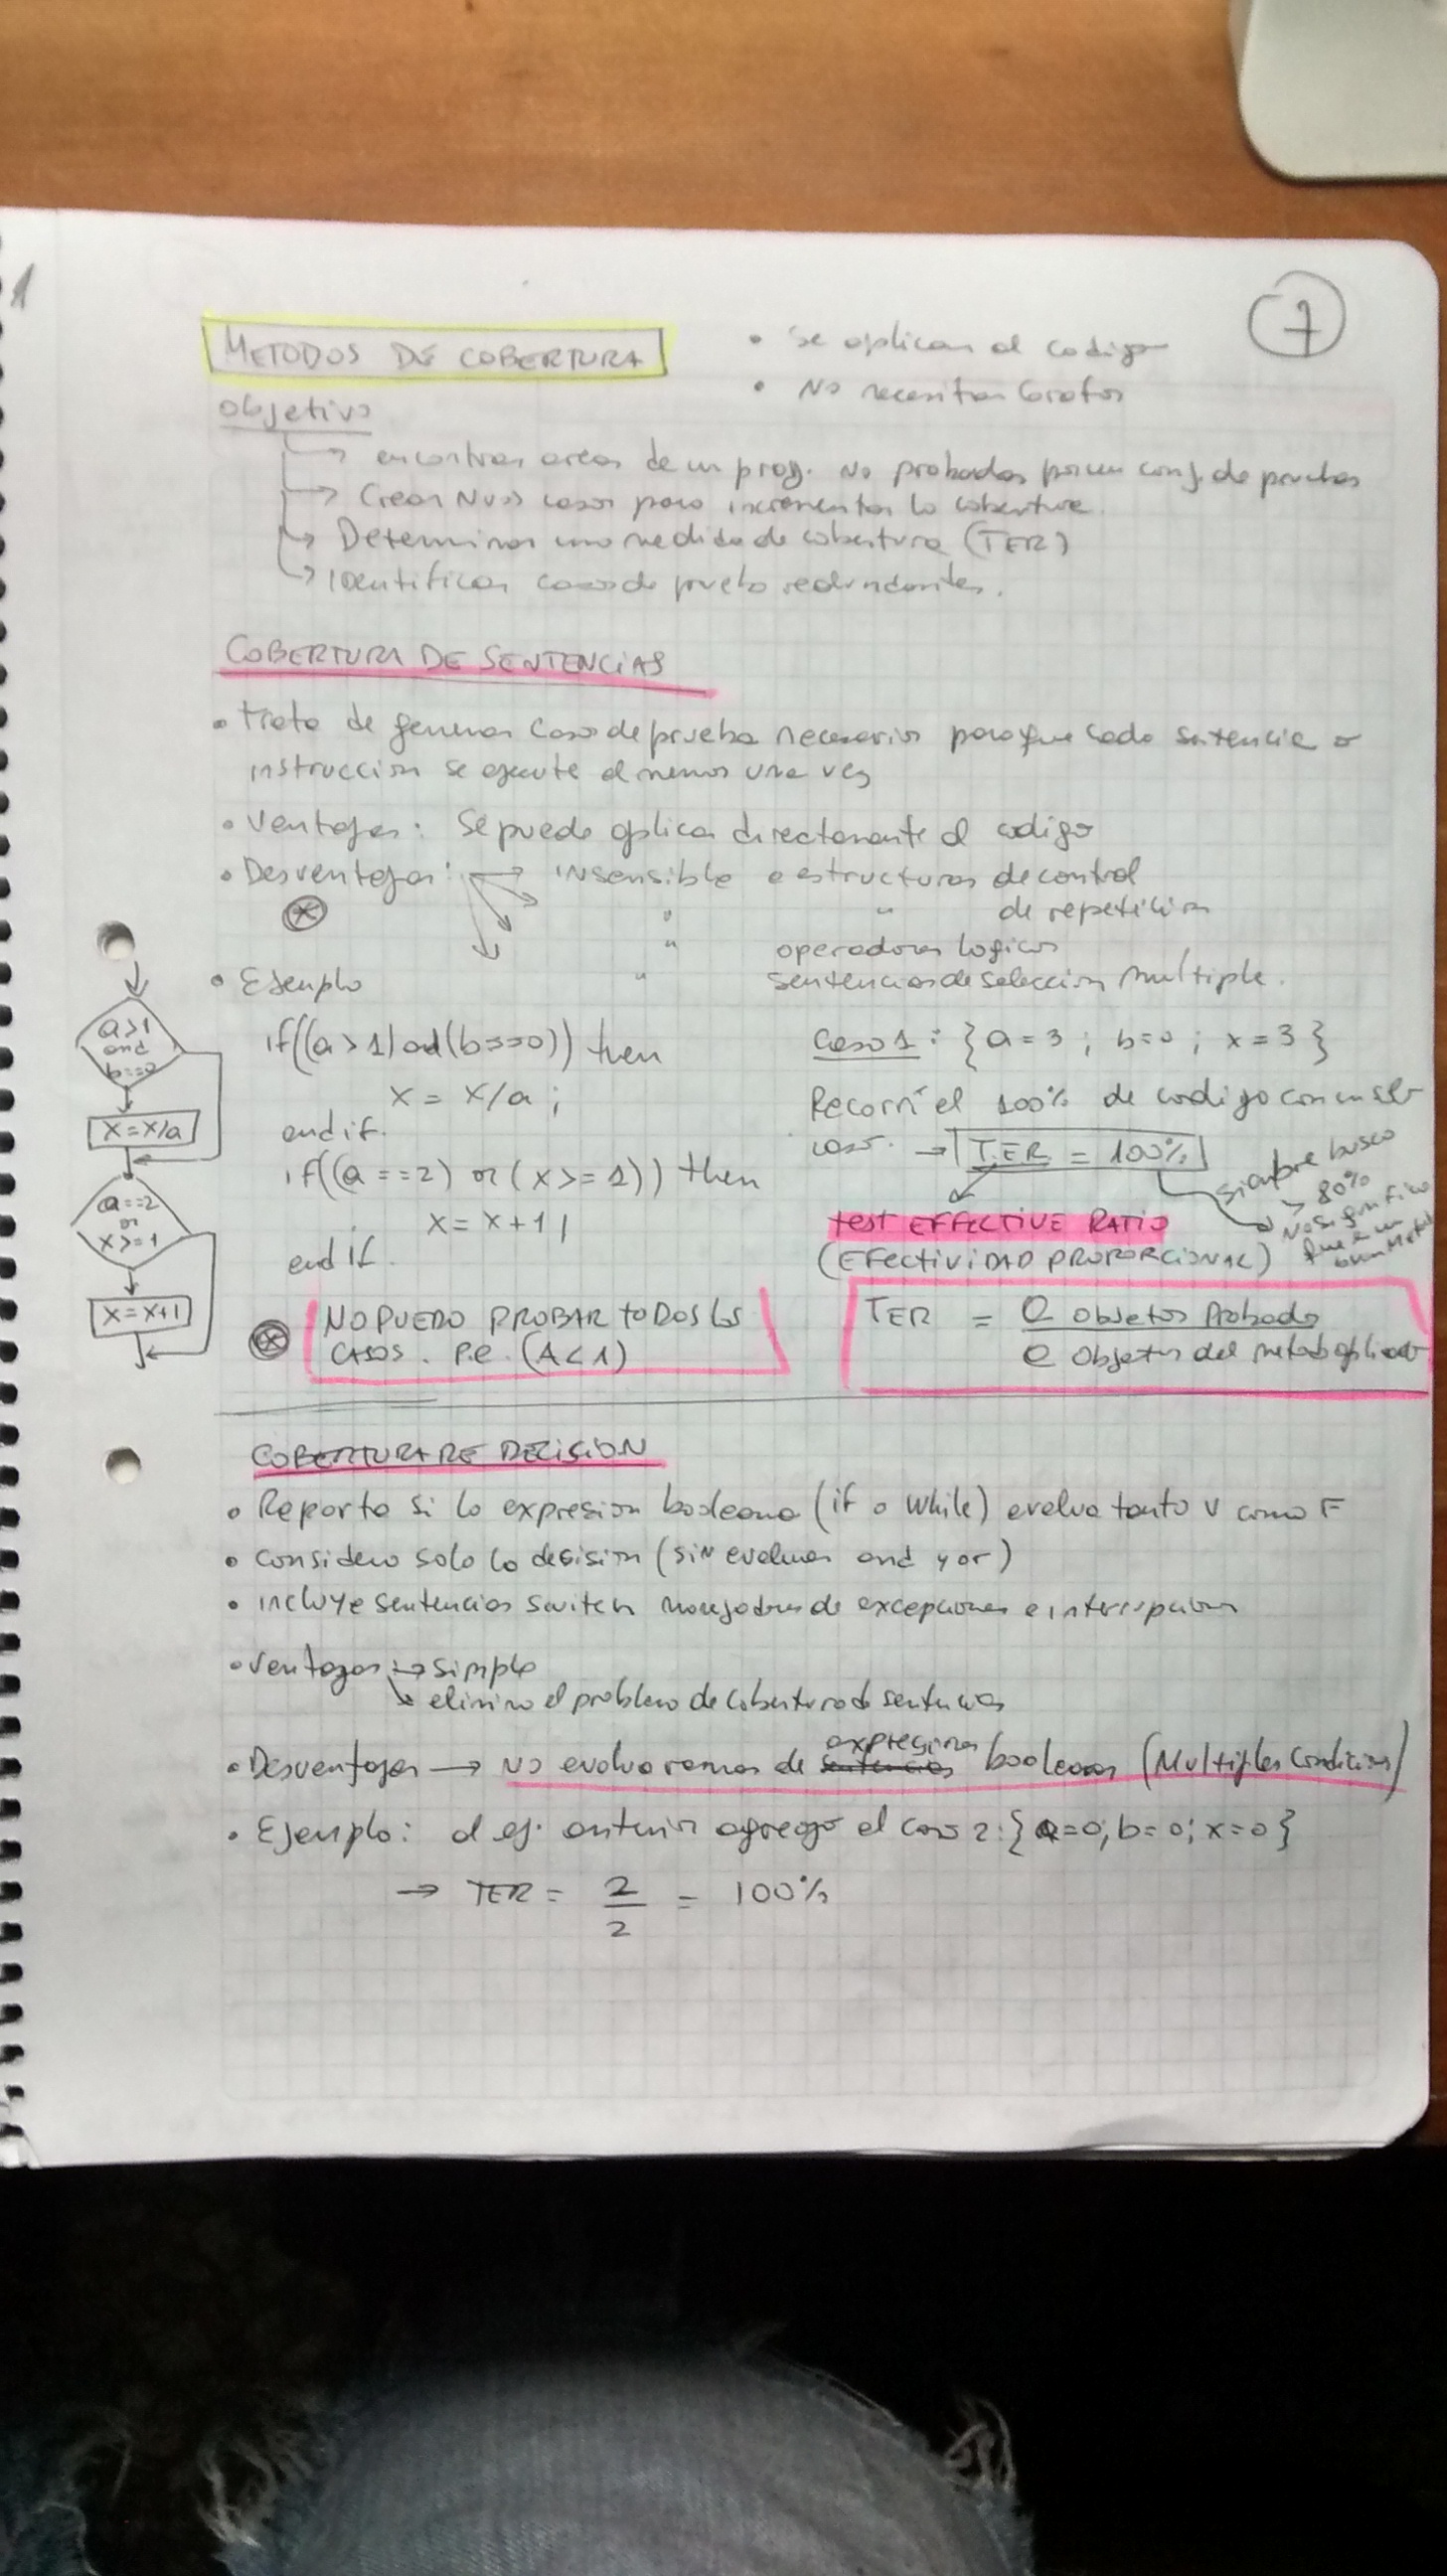 1
7
METODOS DE COBERTURA
• Se aplican al codigo
• No necesitan Grafos
Objetivo
→ encontrar areas de un prog. No probadas por un conj. de pruebas
→ Crear Nvos casos para incrementar la cobertura.
→ Determinar una medida de cobertura (TER)
→ Identificar casos de prueba redundantes.
COBERTURA DE SENTENCIAS
• Trata de generar casos de prueba necesarios para que cada sentencia o
instruccion se ejecute al menos una vez
• Ventajas: Se puede aplicar directamente al codigo
• Desventajas: → insensible a estructuras de control
" " de repeticion
" operadores logicos
" sentencias de seleccion multiple.
• Ejemplo
if((a>1) and (b==0)) then
x = x/a ;
end if.
if((a==2) or (x>=1)) then
x = x+1 ;
end if.
a>1
and
b==0
x=x/a
a==2
or
x>=1
x=x+1
Caso 1: {a=3 ; b=0 ; x=3}
Recorrí el 100% de codigo con un solo
caso. → TER = 100%
siempre busco
> 80%
No significa
que es un
buen
TEST EFFECTIVE RATIO
(EFECTIVIDAD PROPORCIONAL)
NO PUEDO PROBAR TODOS LOS
CASOS. P.e. (A<1)
TER = Objetos Probados
Objetos del metodo aplicado
COBERTURA DE DECISION
• Reporta si la expresion booleana (if o while) evalua tanto V como F
• Considera solo la desision (sin evaluar and y or)
• incluye sentencias switch manejadores de excepciones e interrupciones
• Ventajas → simple
↘ elimina el problema de cobertura de sentencias
• Desventajas → No evalua ramas de expresiones booleanas (Multiples Condiciones)
• Ejemplo: al ej. anterior agrego el caso 2: {a=0; b=0; x=0}
→ TER = 2/2 = 100%